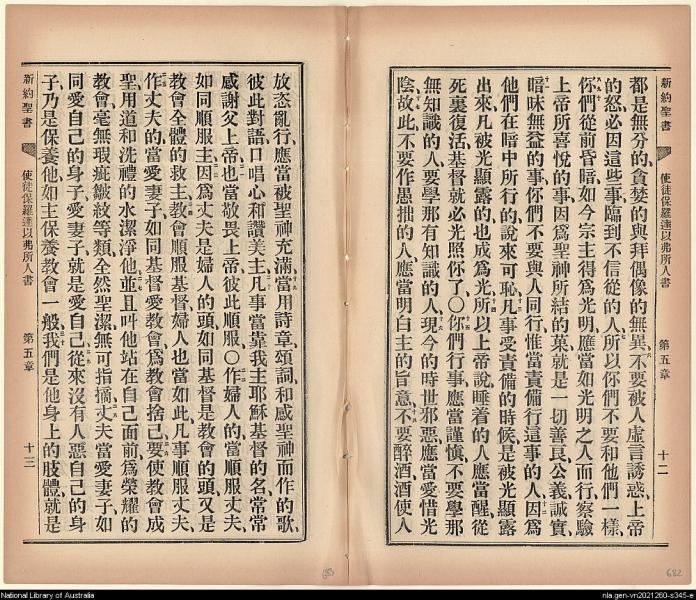 新約聖書
使徒保羅達以弗所人書
第五章
十二
都是無分的、貪婪的與拜偶像的無異、不要被人虛言誘惑、上帝
的怒、必因這些事臨到不信從的人、所以你們不要和他們一樣、
你們從前昏暗、如今宗主得為光明、應當如光明之人而行、察驗
上帝所喜悅的事、因為聖神所結的菓、就是一切善良公義誠實、
暗昧無益的事、你們不要與人同行、惟當責備行這事的人、因為
他們在暗中所行的、說來可恥、凡事受責備的時候、是被光顯露
出來、凡被光顯露的也成為光、所以上帝說、睡着的人應當醒、從
死裏復活、基督就必光照你了〇你們行事應當謹慎、不要學那
無知識的人、要學那有知識的人、現今的時世邪惡、應當愛惜光
陰、故此不要作愚拙的人、應當明白主的旨意、不要醉酒、酒使人
放恣亂行、應當被聖神充滿、當用詩章、頌詞、和感聖神而作的歌、
彼此對語、口唱心和讚美主、凡事當靠我主耶穌基督的名、常常
感謝父上帝、也當敬畏上帝、彼此順服〇作婦人的、當順服丈夫、
如同順服主、因為丈夫是婦人的頭、如同基督是教會的頭、又是
教會全體的救主、教會順服基督、婦人也當如此、凡事順服丈夫、
作丈夫的、當愛妻子、如同基督愛教會、為教會捨己、要使教會成
聖、用道和洗禮的水潔淨他、並且叫他站在自己面前、為榮耀的
教會、毫無瑕疵皺紋等類、全然聖潔、無可指摘、丈夫當愛妻子、如
同愛自己的身子、愛妻子就是愛自己、從來沒有人惡自己的身
子、乃是保養他、如主保養教會一般、我們是他身上的肢體、就是
新約聖書
使徒保羅達以弗所人書
第五章
十三
682
National Library of Australia
nla.gen-vn2021260-s345-e